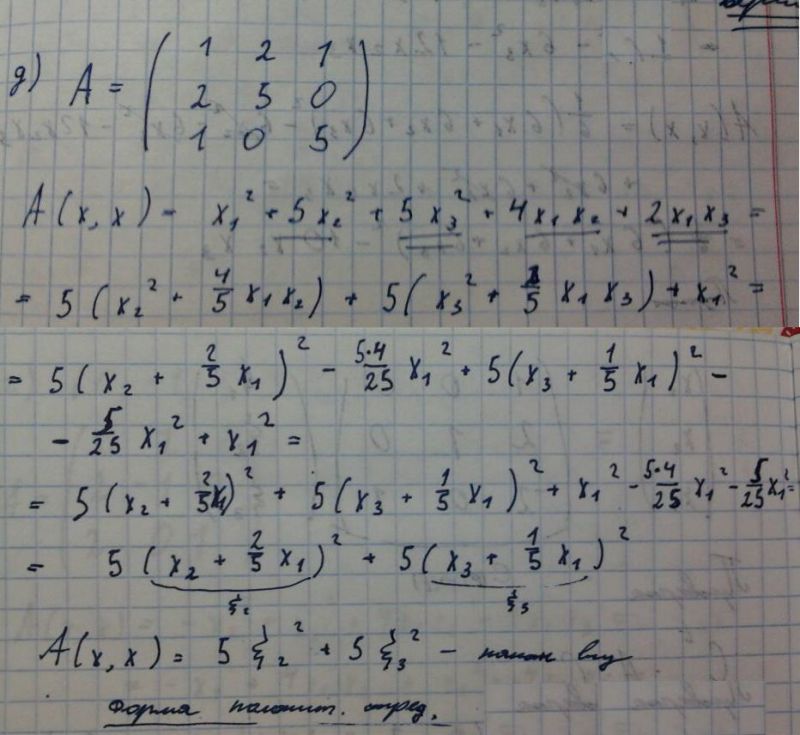 д) A = ( 1 2 1
2 5 0
1 0 5 )
A(x, x) = x₁² + 5x₂² + 5x₃² + 4x₁x₂ + 2x₁x₃ =
= 5(x₂² + 4/5 x₁x₂) + 5(x₃² + 2/5 x₁x₃) + x₁² =
= 5(x₂ + 2/5 x₁)² - 5·4/25 x₁² + 5(x₃ + 1/5 x₁)² -
- 5/25 x₁² + x₁² =
= 5(x₂ + 2/5 x₁)² + 5(x₃ + 1/5 x₁)² + x₁² - 5·4/25 x₁² - 5/25 x₁² =
= 5(x₂ + 2/5 x₁)² + 5(x₃ + 1/5 x₁)²
ξ₂ ξ₃
A(x, x) = 5ξ₂² + 5ξ₃² -
Форма положит. опред.